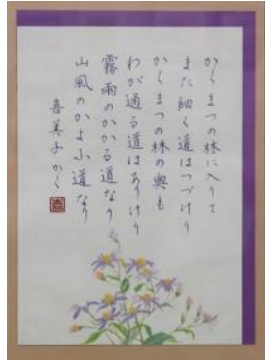 からまつの林に入りて
また細く道はつづけり
からまつの林の奥も
わが通る道はありけり
霧雨のかかる道なり
山風のかよふ道なり
喜美子かく